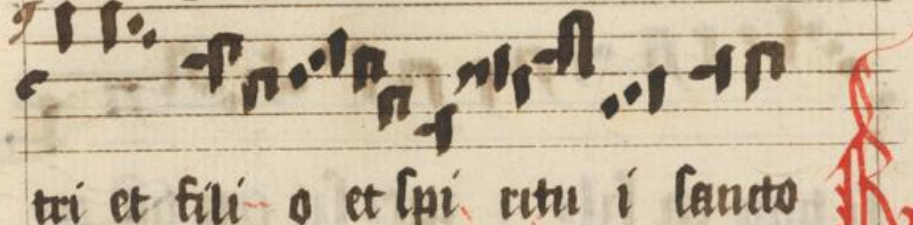 tri et fili o et spi ritu i sancto